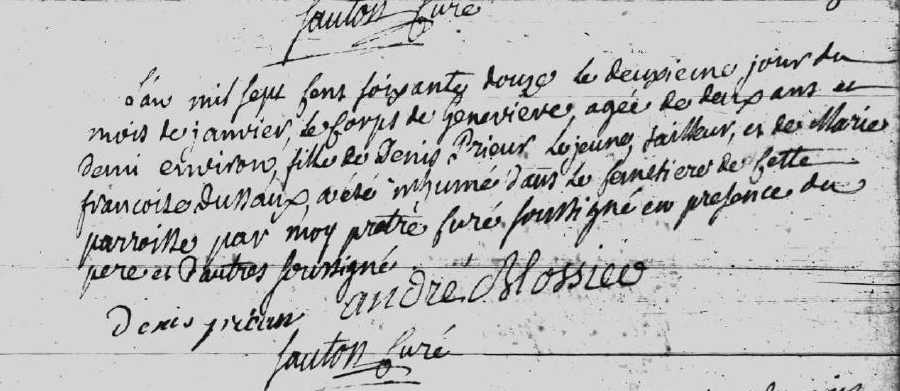 sauton Curé
L'an mil sept cens soixante douze le deuxieme jour du
mois de janvier, le corps de Genevieve, agée de deux ans et
demi environ, fille de Denis Prieur le jeune, tailleur, et de Marie
francoise dussaux a été inhumé dans le cemetiere de cette
parroisse par moy pretre curé soussigné en presence du
pere et d'autres soussigné
andré Mossieo
Denis prieur
sauton Curé